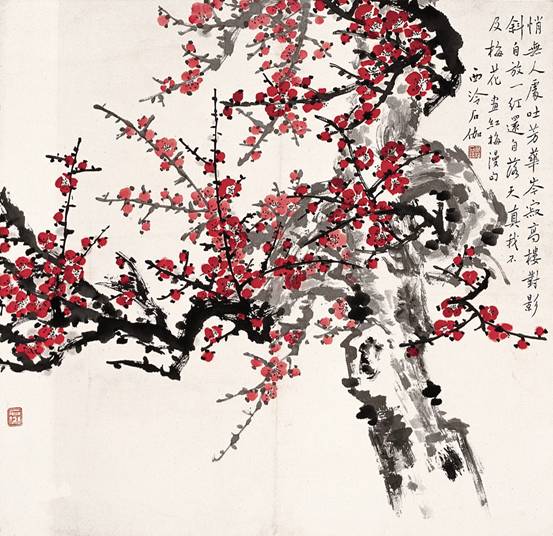 悄無人處吐芳華岑寂高樓對影
斜自放一紅還自落天真我不
及梅花畫紅梅漫句
西泠石伽